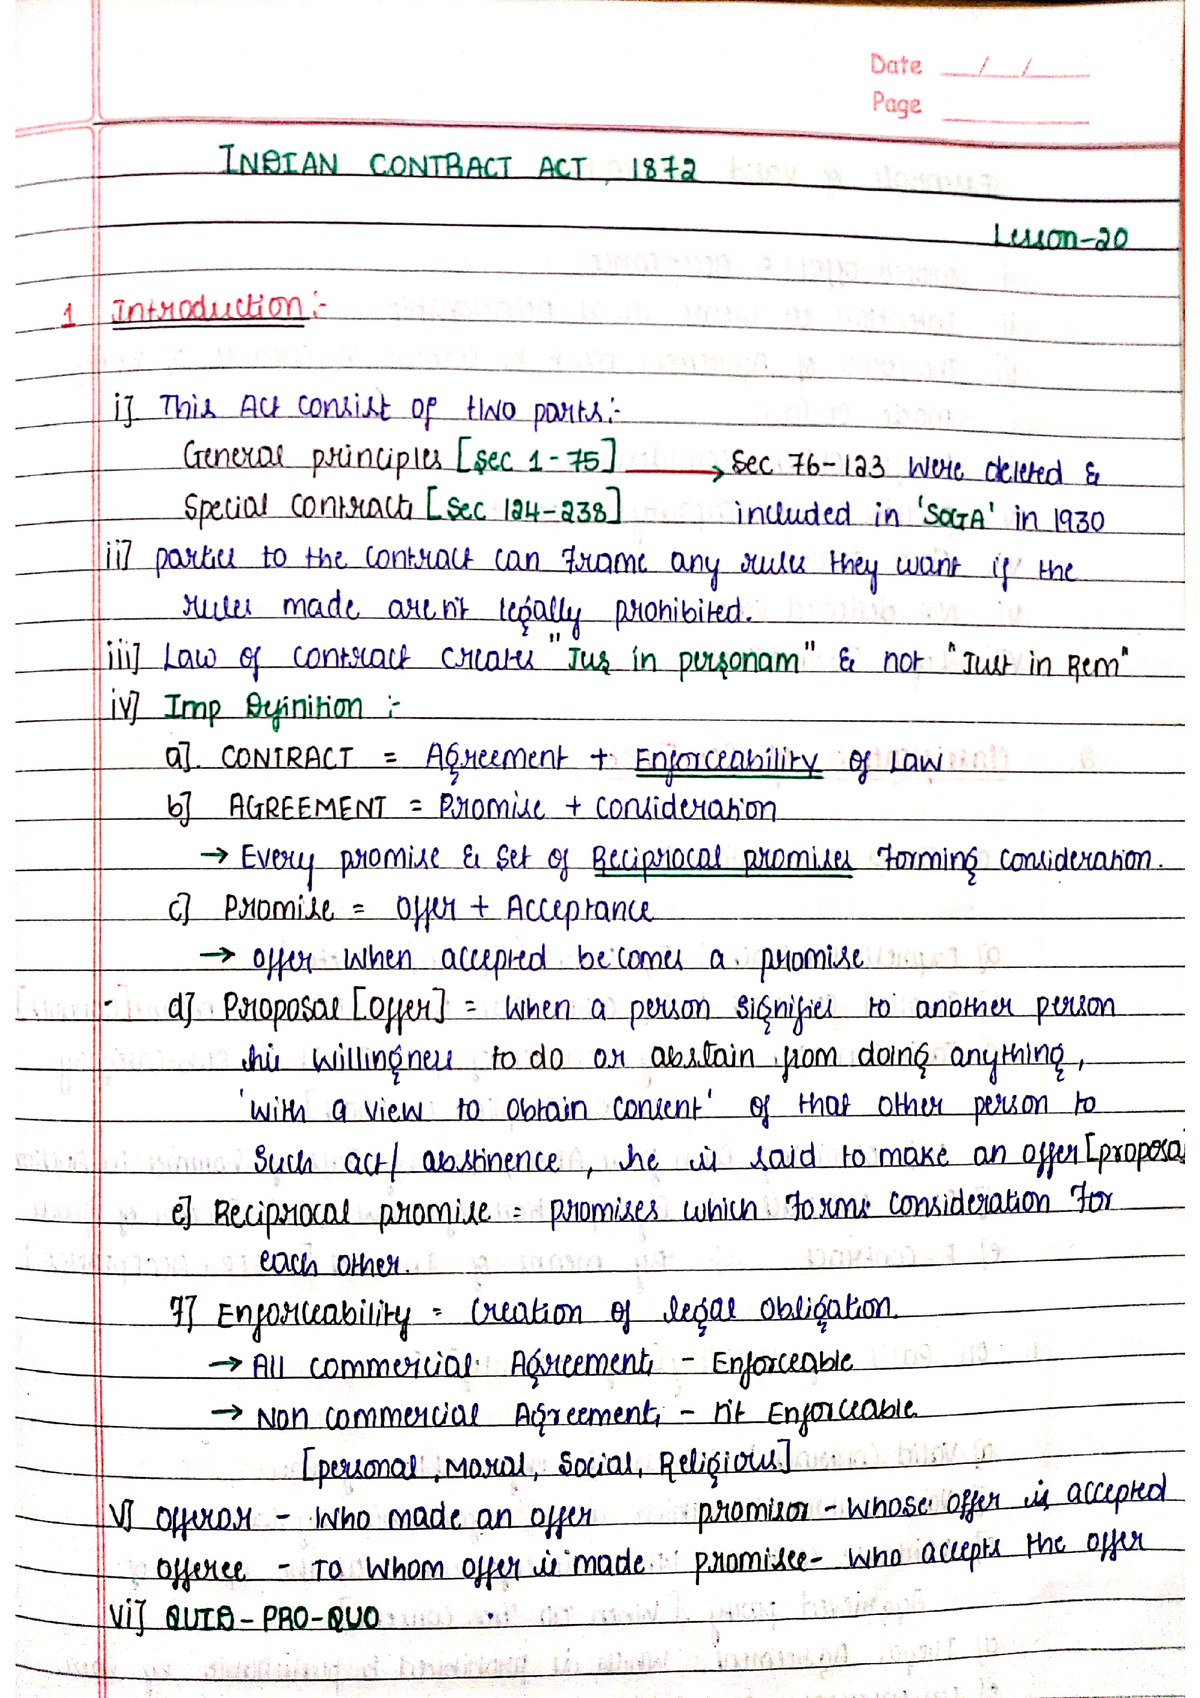 Date __/__/____
Page ________
INDIAN CONTRACT ACT, 1872
Lesson-20
1 Introduction :-
i] This Act consist of two parts:-
General principles [Sec 1-75] → Sec 76-123 were deleted &
Special contracts [Sec 124-238] included in 'SOGA' in 1930
ii] parties to the contract can frame any rules they want if the
rules made aren't legally prohibited.
iii] Law of contract creates "Jus in personam" & not "Just in Rem"
iv] Imp Definition :-
a]. CONTRACT = Agreement + Enforceability of Law
b] AGREEMENT = Promise + consideration
→ Every promise & set of Reciprocal promises forming consideration.
c] Promise = offer + Acceptance
→ offer when accepted becomes a promise
d] Proposal [offer] = when a person signifies to another person
his willingness to do or abstain from doing anything,
'with a view to obtain consent' of that other person to
such act/ abstinence, he is said to make an offer [proposa
e] Reciprocal promise = promises which forms consideration for
each other.
f] Enforceability = creation of legal obligation.
→ All commercial Agreements - Enforceable
→ Non commercial Agreements - n't Enforceable
[personal, Moral, Social, Religious]
v] offeror - who made an offer promisor - whose offer is accepted
offeree - To whom offer is made promisee - who accepts the offer
vi] QUID-PRO-QUO